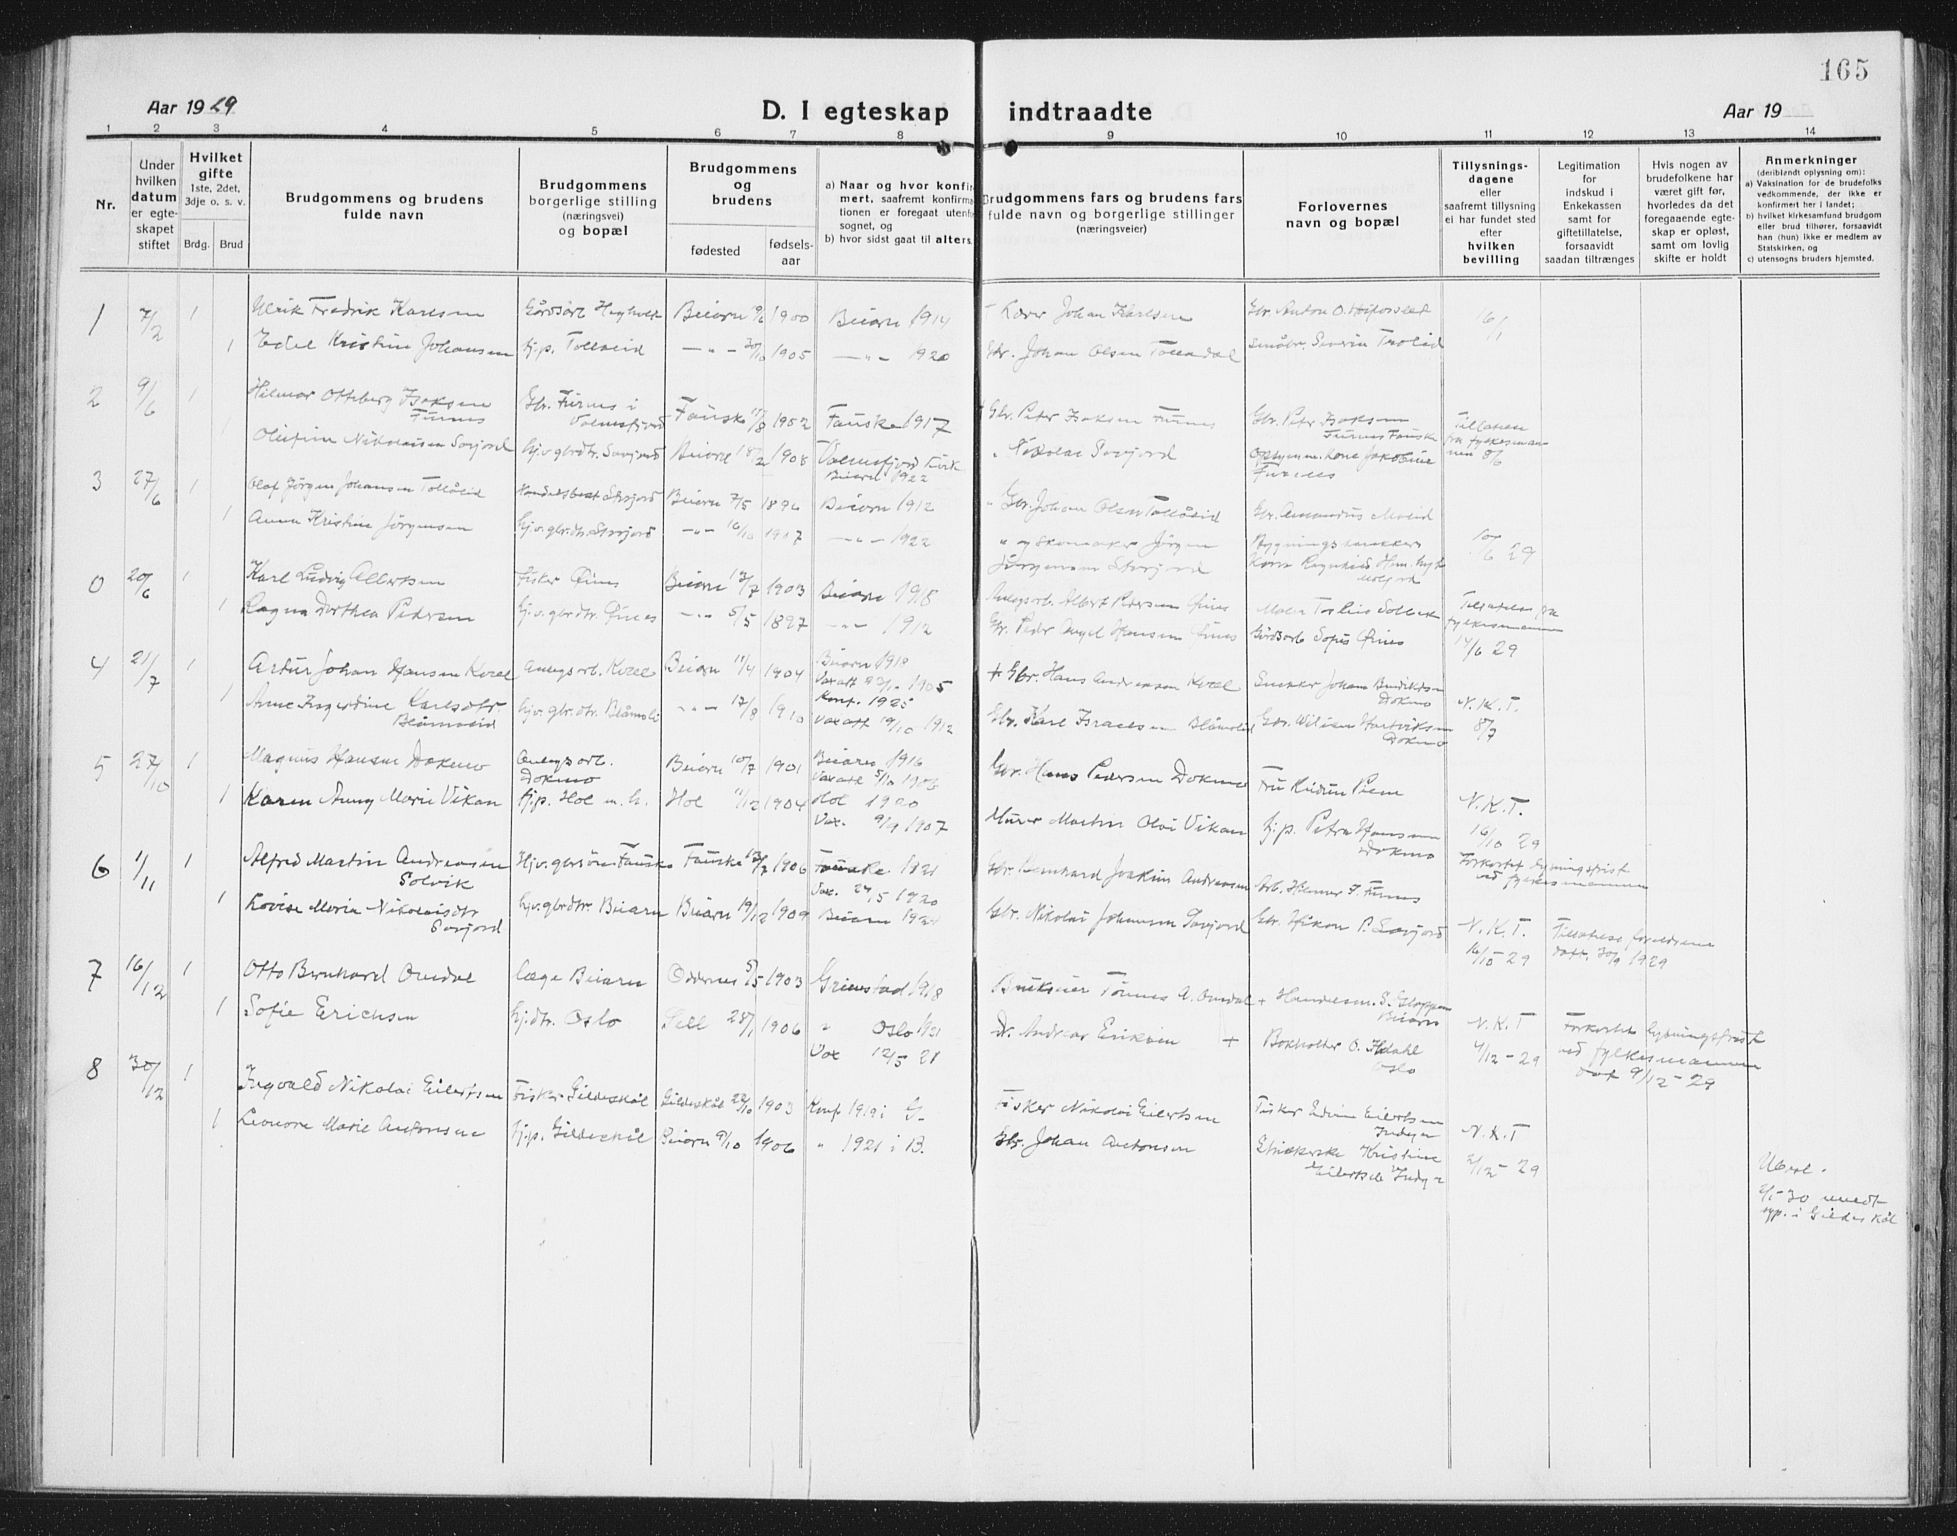 165
Aar 1929
D. I egteskap indtraadte
Aar 19
1 2 3 4 5 6 7 8 9 10 11 12 13 14
Nr.
Under hvilken datum er egteskapet stiftet
Hvilket gifte
1ste, 2det, 3dje o. s. v.
Brdg. Brud
Brudgommens og brudens fulde navn
Brudgommens borgerlige stilling (næringsvei) og bopæl
Brudgommens og brudens
fødested
fødselsaar
a) Naar og hvor konfirmert, saafremt konfirmationen er foregaat utenfor sognet, og
b) hvor sidst gaat til alters.
Brudgommens fars og brudens fars fulde navn og borgerlige stillinger (næringsveier)
Forlovernes navn og bopæl
Tillysningsdagene eller saafremt tillysning ei har fundet sted efter hvilken bevilling
Legitimation for indskud i Enkekassen samt for giftetillatelse, forsaavidt saadan tiltrænges
Hvis nogen av brudefolkene har været gift før, hvorledes da det foregaaende egteskap er opløst, samt om lovlig skifte er holdt
Anmerkninger
(deriblandt oplysning om):
a) Vaksination for de brudefolks vedkommende, der ikke er konfirmert her i landet;
b) hvilket kirkesamfund brudgom eller brud tilhører, forsaavidt han (hun) ikke er medlem av Statskirken, og
c) utensogns bruders hjemsted.
1 7/2 1 Ulrik Fredrik Karlsen Beiarn 1900 Beiarn 1914 Johan Karlsen Gbr. Anton O. 16/1
1 Edel Kristine Johansen hj.p. Tollaeid —"— 30/10 1905 —"— 1920 Gbr. Johan Olsen Tollådal småbr. Severin
2 9/6 1 Hilmar Ottoberg Isaksen Furnes Gbr. Furnes i Valnesfjord Fauske 17/8 1902 Fauske 1917 Gbr. Peter Isaksen Furnes Gbr. Peter Isaksen Furnes Fauske Tillatelse fra fylkesmannen 8/6
Oletine Nikolaisen Savjord hj.v. gbrdtr. Savjord Beiarn 18/2 1908 Valnesfjord Kirk Beiarn 1922 " Nikolai Savjord kone Jakobine Furnes
3 27/6 1 Olaf Jørgen Johansen Tollåeid Storjord Beiarn 7/5 1896 Beiarn 1912 " Gbr. Johan Olsen Tollåeid Gbr. Amandus Moeid
1 Anna Kristine Jørgensen hj.v. gbrdtr. Storjord —"— 16/10 1907 —"— 1922 " og skomaker Jørgen Jørgensen Storjord Bygningssnekker 29
0 20/6 1 Karl Ludvig Albertsen Fisker Øines Beiarn 13/7 1903 Beiarn 1918 Anlegsarb. Albert Pedersen Øines
1 Ragna Dorthea Pedersen hj.v. gbrdtr. Øines —"— 5/5 1897 —"— 1912 Gbr. Peder Angel Hansen Øines Gårdsarb. Øines Tillatelse fra fylkesmannen 14/6 29
4 21/7 1 Artur Johan Hansen Kvæl Anlegsarb. Kvæl Beiarn 11/4 1904 Beiarn 1919 1905 + Gbr. Hans Andreassen Kvæl Snekker Johan Dokmo
1 Anne Ingerdine Karlsdtr Blåmoeid hj.v. gbrdtr. Blåmoli —"— 17/8 1910 Konf. 1925 Vax att 19/10 1912 Gbr. Karl Israelsen Blåmoeid Gbr. Wiliam Hartviksen Dokmo N.K.T. 8/7
5 27/10 1 Magnus Hansen Dokmo Anlegsarb. Dokmo Beiarn 10/7 1901 Beiarn 1916 Vax att 5/10 1906 Gbr. Hans Pedersen Dokmo Fru
1 Karen Anny Marie Vikan hj.p. Hol m.h. Hol 11/12 1904 Hol 1920 Vax. 9/9 1907 Murer Martin Olai Vikan hj.p. Petra Hansen Dokmo N.K.T. 16/10 29
6 1/11 1 Alfred Martin Andreassen Solvik Hj.v. gbrsøn Fauske Fauske 13/2 1906 Fauske 1921 Vax. 24/5 1920 Gbr. Bernhard Joakim Andreassen Arb. Hilmar I. Furnes Forkortet lysningsfrist ved fylkesmannen
1 Lovise Marie Nikolaisdtr Savjord hj.v. gbrdtr. Beiarn Beiarn 19/12 1909 Beiarn 1924 Gbr. Nikolai Johansen Savjord Gbr. Håkon P. Savjord N.K.T. 16/10 29 Tillatelse foreldrene datt. 30/9 1929
7 16/12 1 Otto Bernhard Omdal Læge Beiarn Oddernes 5/5 1903 Grimstad 1918 Bruksier Tønnes A. Omdal + Handelsm. S. Gloppen Beiarn
1 Sofie Erichsen hj.dtr. Oslo Sell 28/1 1906 " Oslo 1921 Vax 12/5 21 Dr. Andreas Eriksen + Bokholder O. Hdahl Oslo N.K.T 4/12-29 Forkortet lysningsfrist ved fylkesmannen dat 9/12-29
8 30/12 1 Ingvald Nikolai Eilertsen Fisker Gildeskål Gildeskål 22/10 1903 Konf 1919 i G. Fisker Nikolai Eilertsen Fisker Edvin Eilertsen Indyr
1 Leonore Marie Antonsen hj.p. Gildeskål Beiarn 9/10 1906 " 1921 i B. Gbr. Johan Antonsen Kristine Eilertsen Indyr N.K.T 2/12-29
30 medt opp. i Gildeskål